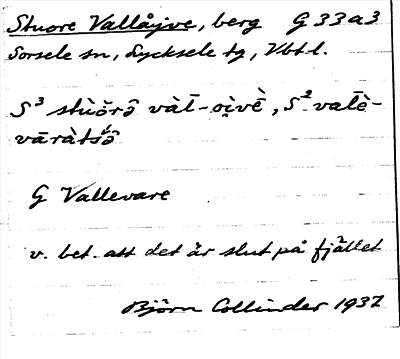 Stuore Vallåjve, berg G 33 a 3
Sorsele sn, Lycksele tg, Vbt l.
S³ stùŏrɔ̂ vàl̄-oi̯vè, S² val̄è-
vāràtsɔ̂
G Vallevare
v. bet. att det är slut på fjället
Björn Collinder 1937